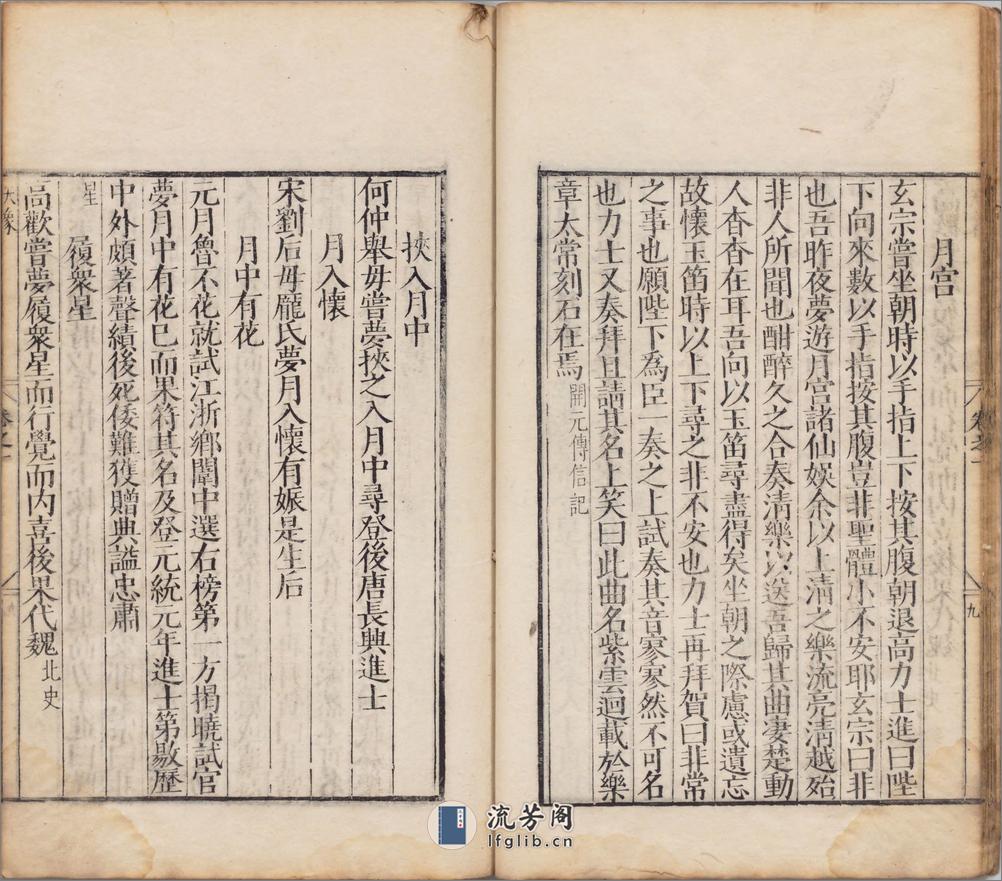 月宮
玄宗嘗坐朝時以手指上下按其腹朝退高力士進曰陛
下向來數以手指按其腹豈非聖體小不安耶玄宗曰非
也吾昨夜夢遊月宮諸仙娛余以上清之樂流亮清越殆
非人所聞也酣醉久之合奏清樂以送吾歸其曲凄楚動
人杳杳在耳吾向以玉笛尋盡得矣坐朝之際慮或遺忘
故懷玉笛時以上下尋之非不安也力士再拜賀曰非常
之事也願陛下為臣一奏之上試奏其音寥寥然不可名
也力士又奏拜且請其名上笑曰此曲名紫雲迴載於樂
章太常刻石在焉開元傳信記
卷之一
九
挾入月中
何仲舉毋嘗夢挾之入月中尋登後唐長興進士
月入懷
宋劉后毋龐氏夢月入懷有娠是生后
月中有花
元月魯不花就試江浙鄉闈中選右榜第一方揭曉試官
夢月中有花巳而果符其名及登元統元年進士第敭歷
中外頗著聲績後死倭難獲贈典謚忠肅
星
履衆星
高歡嘗夢履衆星而行覺而内喜後果代魏北史
卷之一
流芳阁
lfglib.cn